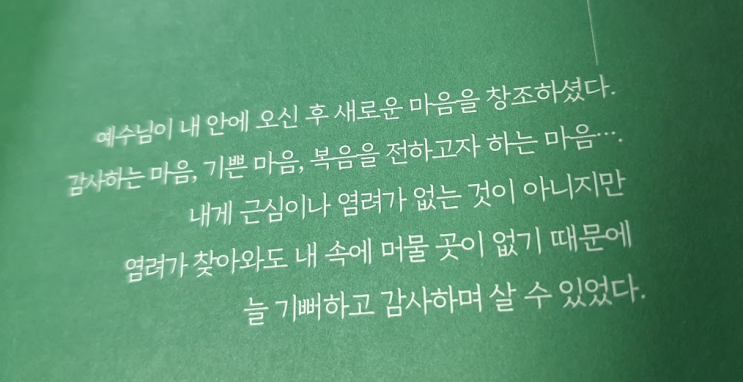 예수님이 내 안에 오신 후 새로운 마음을 창조하셨다.
감사하는 마음, 기쁜 마음, 복음을 전하고자 하는 마음….
내게 근심이나 염려가 없는 것이 아니지만
염려가 찾아와도 내 속에 머물 곳이 없기 때문에
늘 기뻐하고 감사하며 살 수 있었다.